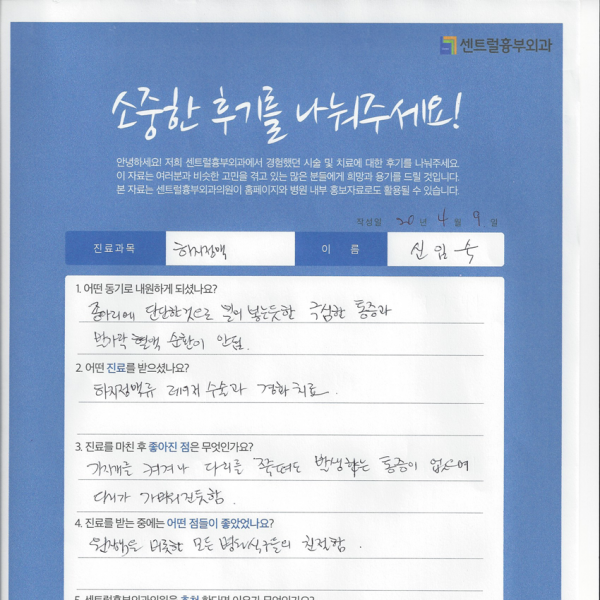 센트럴흉부외과
소중한 후기를 나눠주세요!
안녕하세요! 저희 센트럴흉부외과에서 경험했던 시술 및 치료에 대한 후기를 나눠주세요.
이 자료는 여러분과 비슷한 고민을 겪고 있는 많은 분들에게 희망과 용기를 드릴 것입니다.
본 자료는 센트럴흉부외과의원이 홈페이지와 병원 내부 홍보자료로도 활용될 수 있습니다.
작성일 20 년 4 월 9 일
진료과목 하지정맥 이 름 신임숙
1. 어떤 동기로 내원하게 되셨나요?
종아리에 단단한것으로 붙는듯한 극심한 통증과
발가락 혈액 순환이 안됨.
2. 어떤 진료를 받으셨나요?
하지정맥류 레이저 수술과 경화치료.
3. 진료를 마친 후 좋아진 점은 무엇인가요?
기지개를 켜거나 다리를 쭉 발생하는 통증이 없으며
다리가 가벼워진듯함.
4. 진료를 받는 중에는 어떤 점들이 좋았었나요?
원장님을 비롯한 모든 병원식구들의 친절함.
5. 센트럴흉부외과의원을 추천 한다면 이유가 무엇인가요?